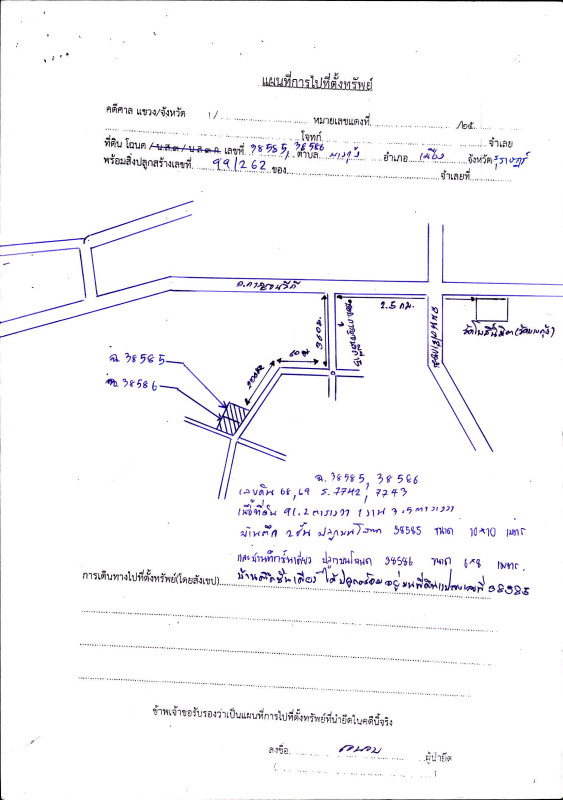 แผนที่การไปที่ตั้งทรัพย์
คดีศาล แขวง/จังหวัด 1/ หมายเลขแดงที่ /๒๕
โจทก์ จำเลย
ที่ดิน โฉนด / น.ส.๓ / น.ส.๓ ก เลขที่ 38585, 38586 ตำบล บางกุ้ง อำเภอ เมือง จังหวัด
พร้อมสิ่งปลูกสร้างเลขที่ 99/262 ของ จำเลยที่
ถ.กาญจนวิถี
2.5 กม.
360ม.
60 ม
200ม
ฉ. 38585
ฉ. 38586
ฉ. 38585, 38586
เลขดิน 68, 69 ร. 7742, 7243
เนื้อที่ดิน 91.2 ตารางวา 1 งาน 3.5 ตารางวา
บ้านตึก 2 ชั้น ปลูกบนโฉนด 38585 ขนาด 10×10 เมตร
และบ้านตึกชั้นเดียว ปลูกบนโฉนด 38586 ขนาด 6×8 เมตร
การเดินทางไปที่ตั้งทรัพย์(โดยสังเขป) บ้านตึกชั้นเดียว ได้ปลูกอยู่บนที่ดินแปลงเลขที่ 38585
ข้าพเจ้าขอรับรองว่าเป็นแผนที่การไปที่ตั้งทรัพย์ที่นำยึดในคดีนี้จริง
ลงชื่อ ผู้นำยึด